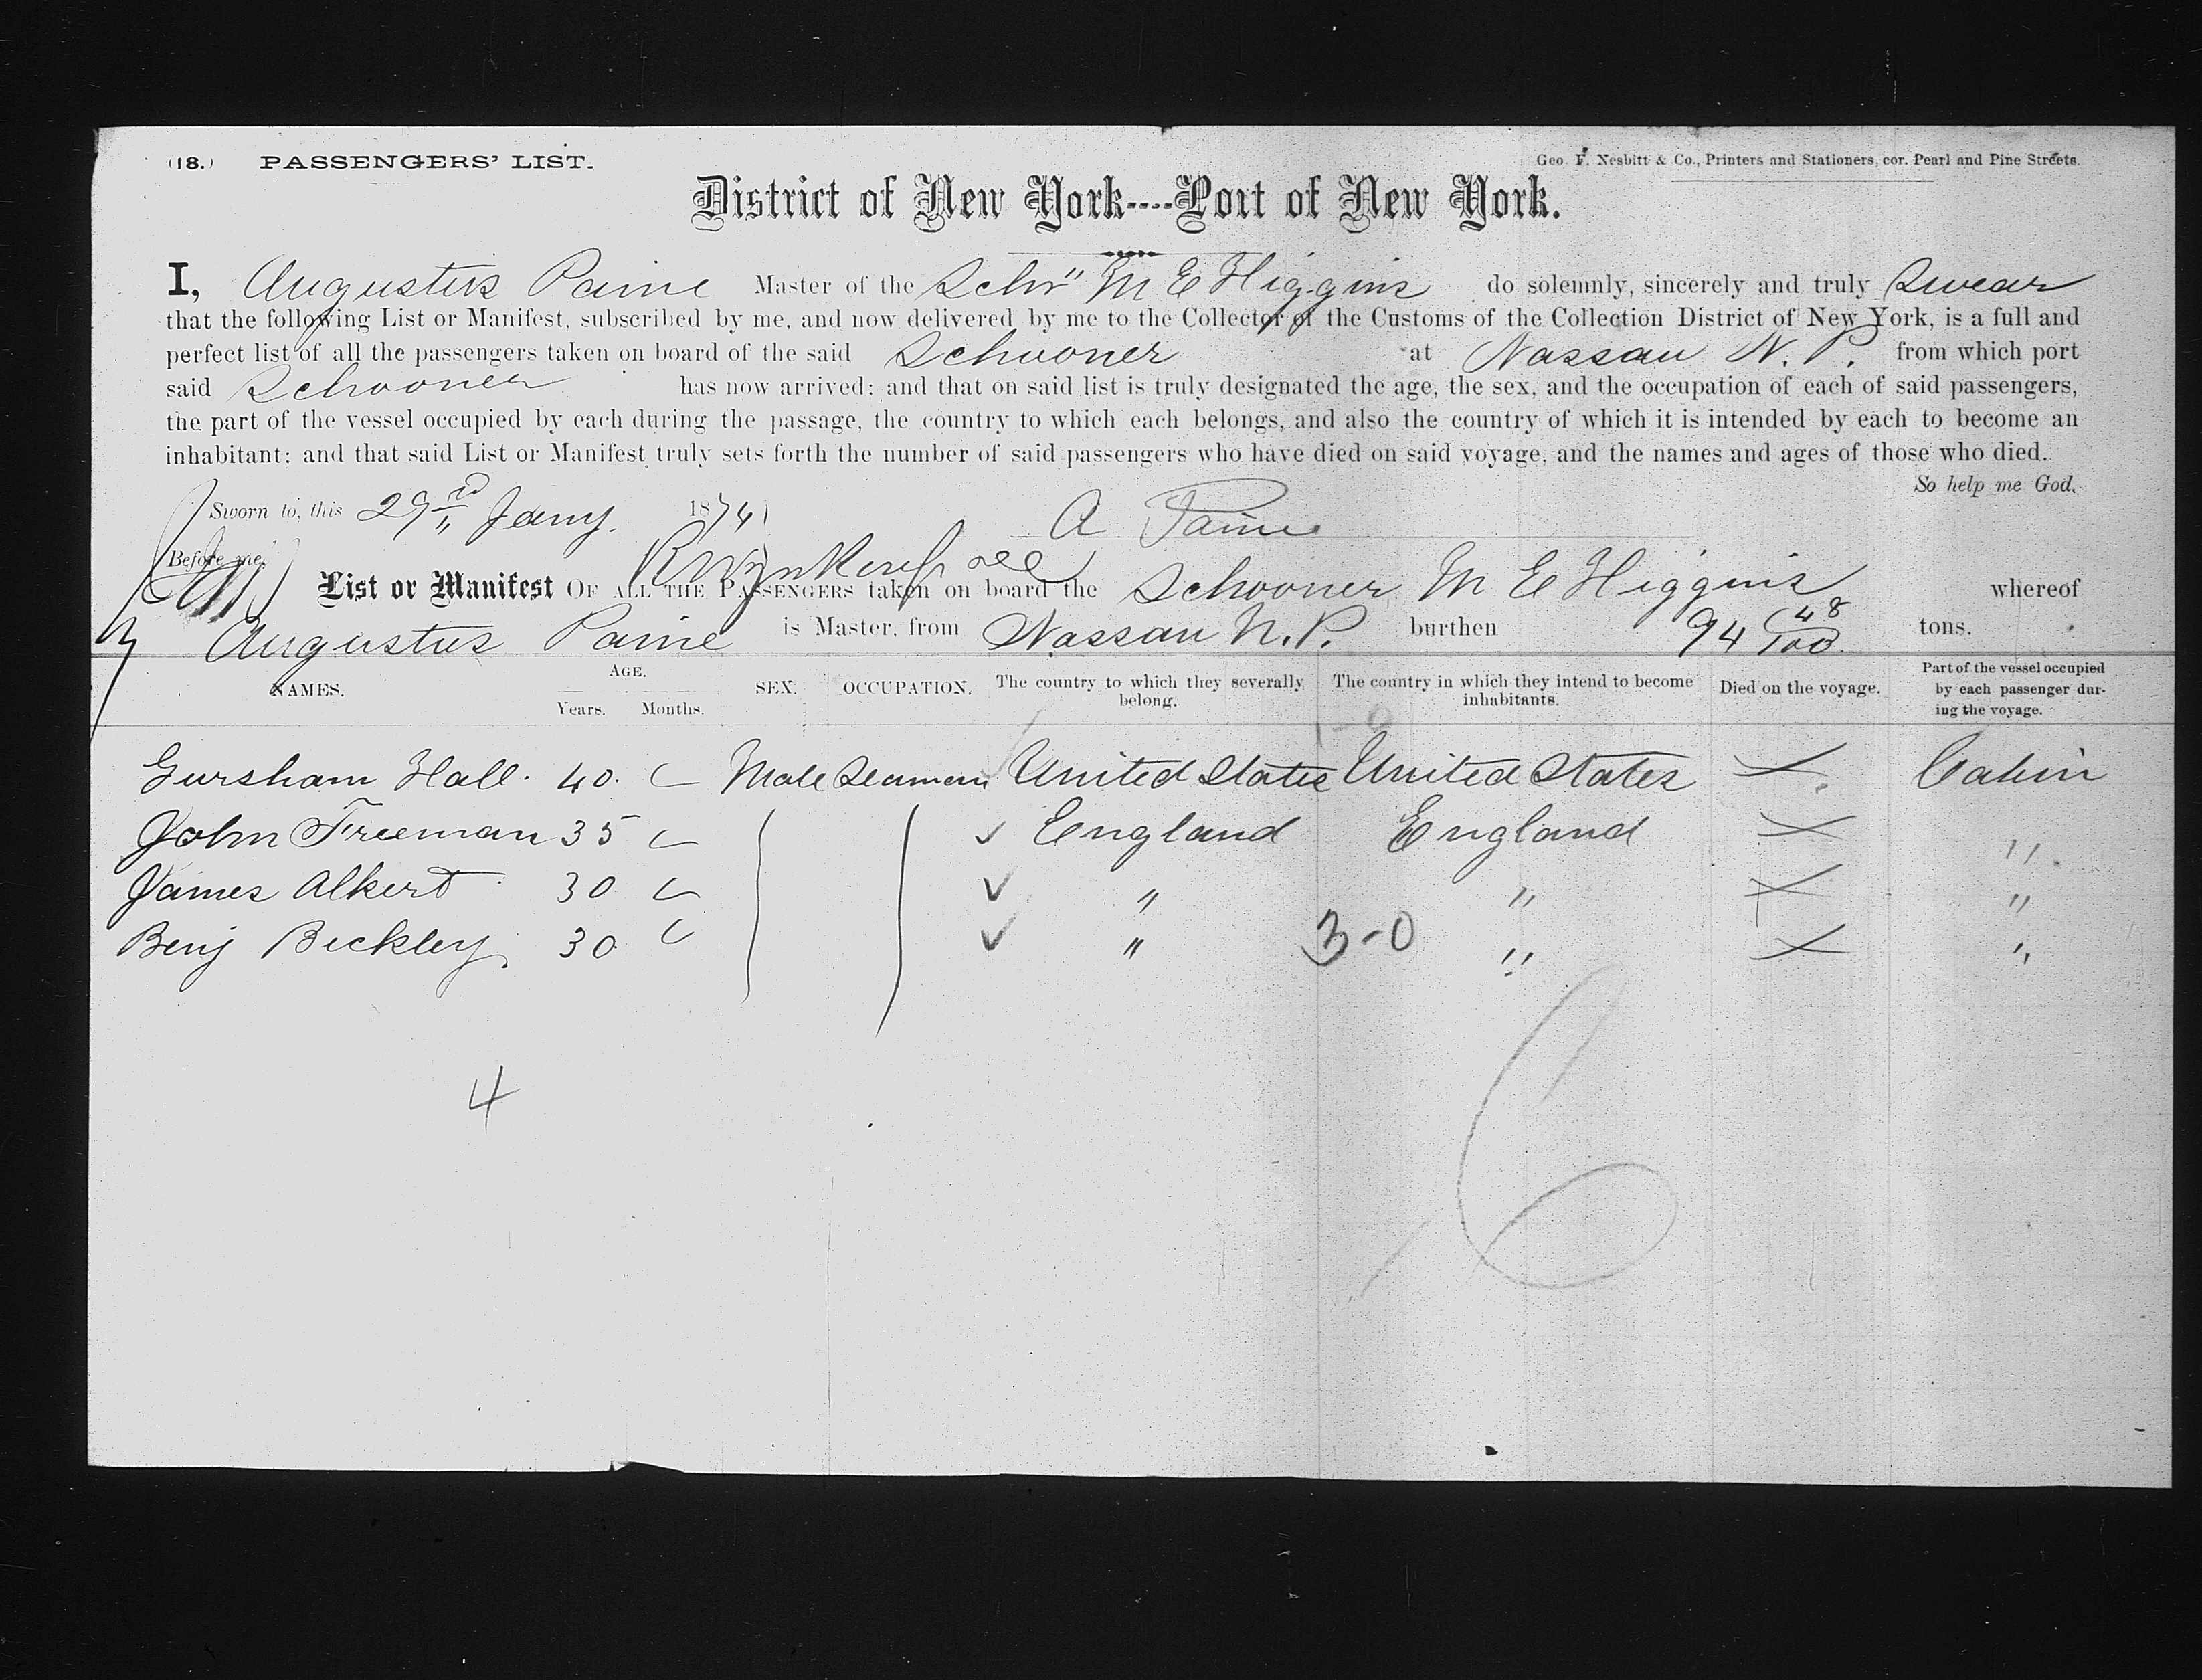 (18.) PASSENGERS' LIST.
Geo. F. Nesbitt & Co., Printers and Stationers, cor. Pearl and Pine Streets.
District of New York----Port of New York.
I, Augustus Paine Master of the Schr" M E Higgins do solemnly, sincerely and truly Swear
that the following List or Manifest, subscribed by me, and now delivered by me to the Collector of the Customs of the Collection District of New York, is a full and
perfect list of all the passengers taken on board of the said Schooner at Nassau N. P. from which port
said Schooner has now arrived; and that on said list is truly designated the age, the sex, and the occupation of each of said passengers,
the part of the vessel occupied by each during the passage, the country to which each belongs, and also the country of which it is intended by each to become an
inhabitant; and that said List or Manifest truly sets forth the number of said passengers who have died on said voyage, and the names and ages of those who died.
So help me God.
Sworn to, this 29 Jany. 1874 A Paine
Before me,
List or Manifest OF ALL THE PASSENGERS taken on board the Schooner M E Higgins whereof
Augustus Paine is Master, from Nassau N. P. burthen 94 48/100 tons.
NAMES. AGE. Years. Months. SEX. OCCUPATION. The country to which they severally belong. The country in which they intend to become inhabitants. Died on the voyage. Part of the vessel occupied by each passenger during the voyage.
1-0
Gursham Hall. 40. Male Seaman United States United States Cabin
John Freeman 35 England England "
James Alkert 30 " " "
Benj Beckley 30 " 3-0 " "
4
6